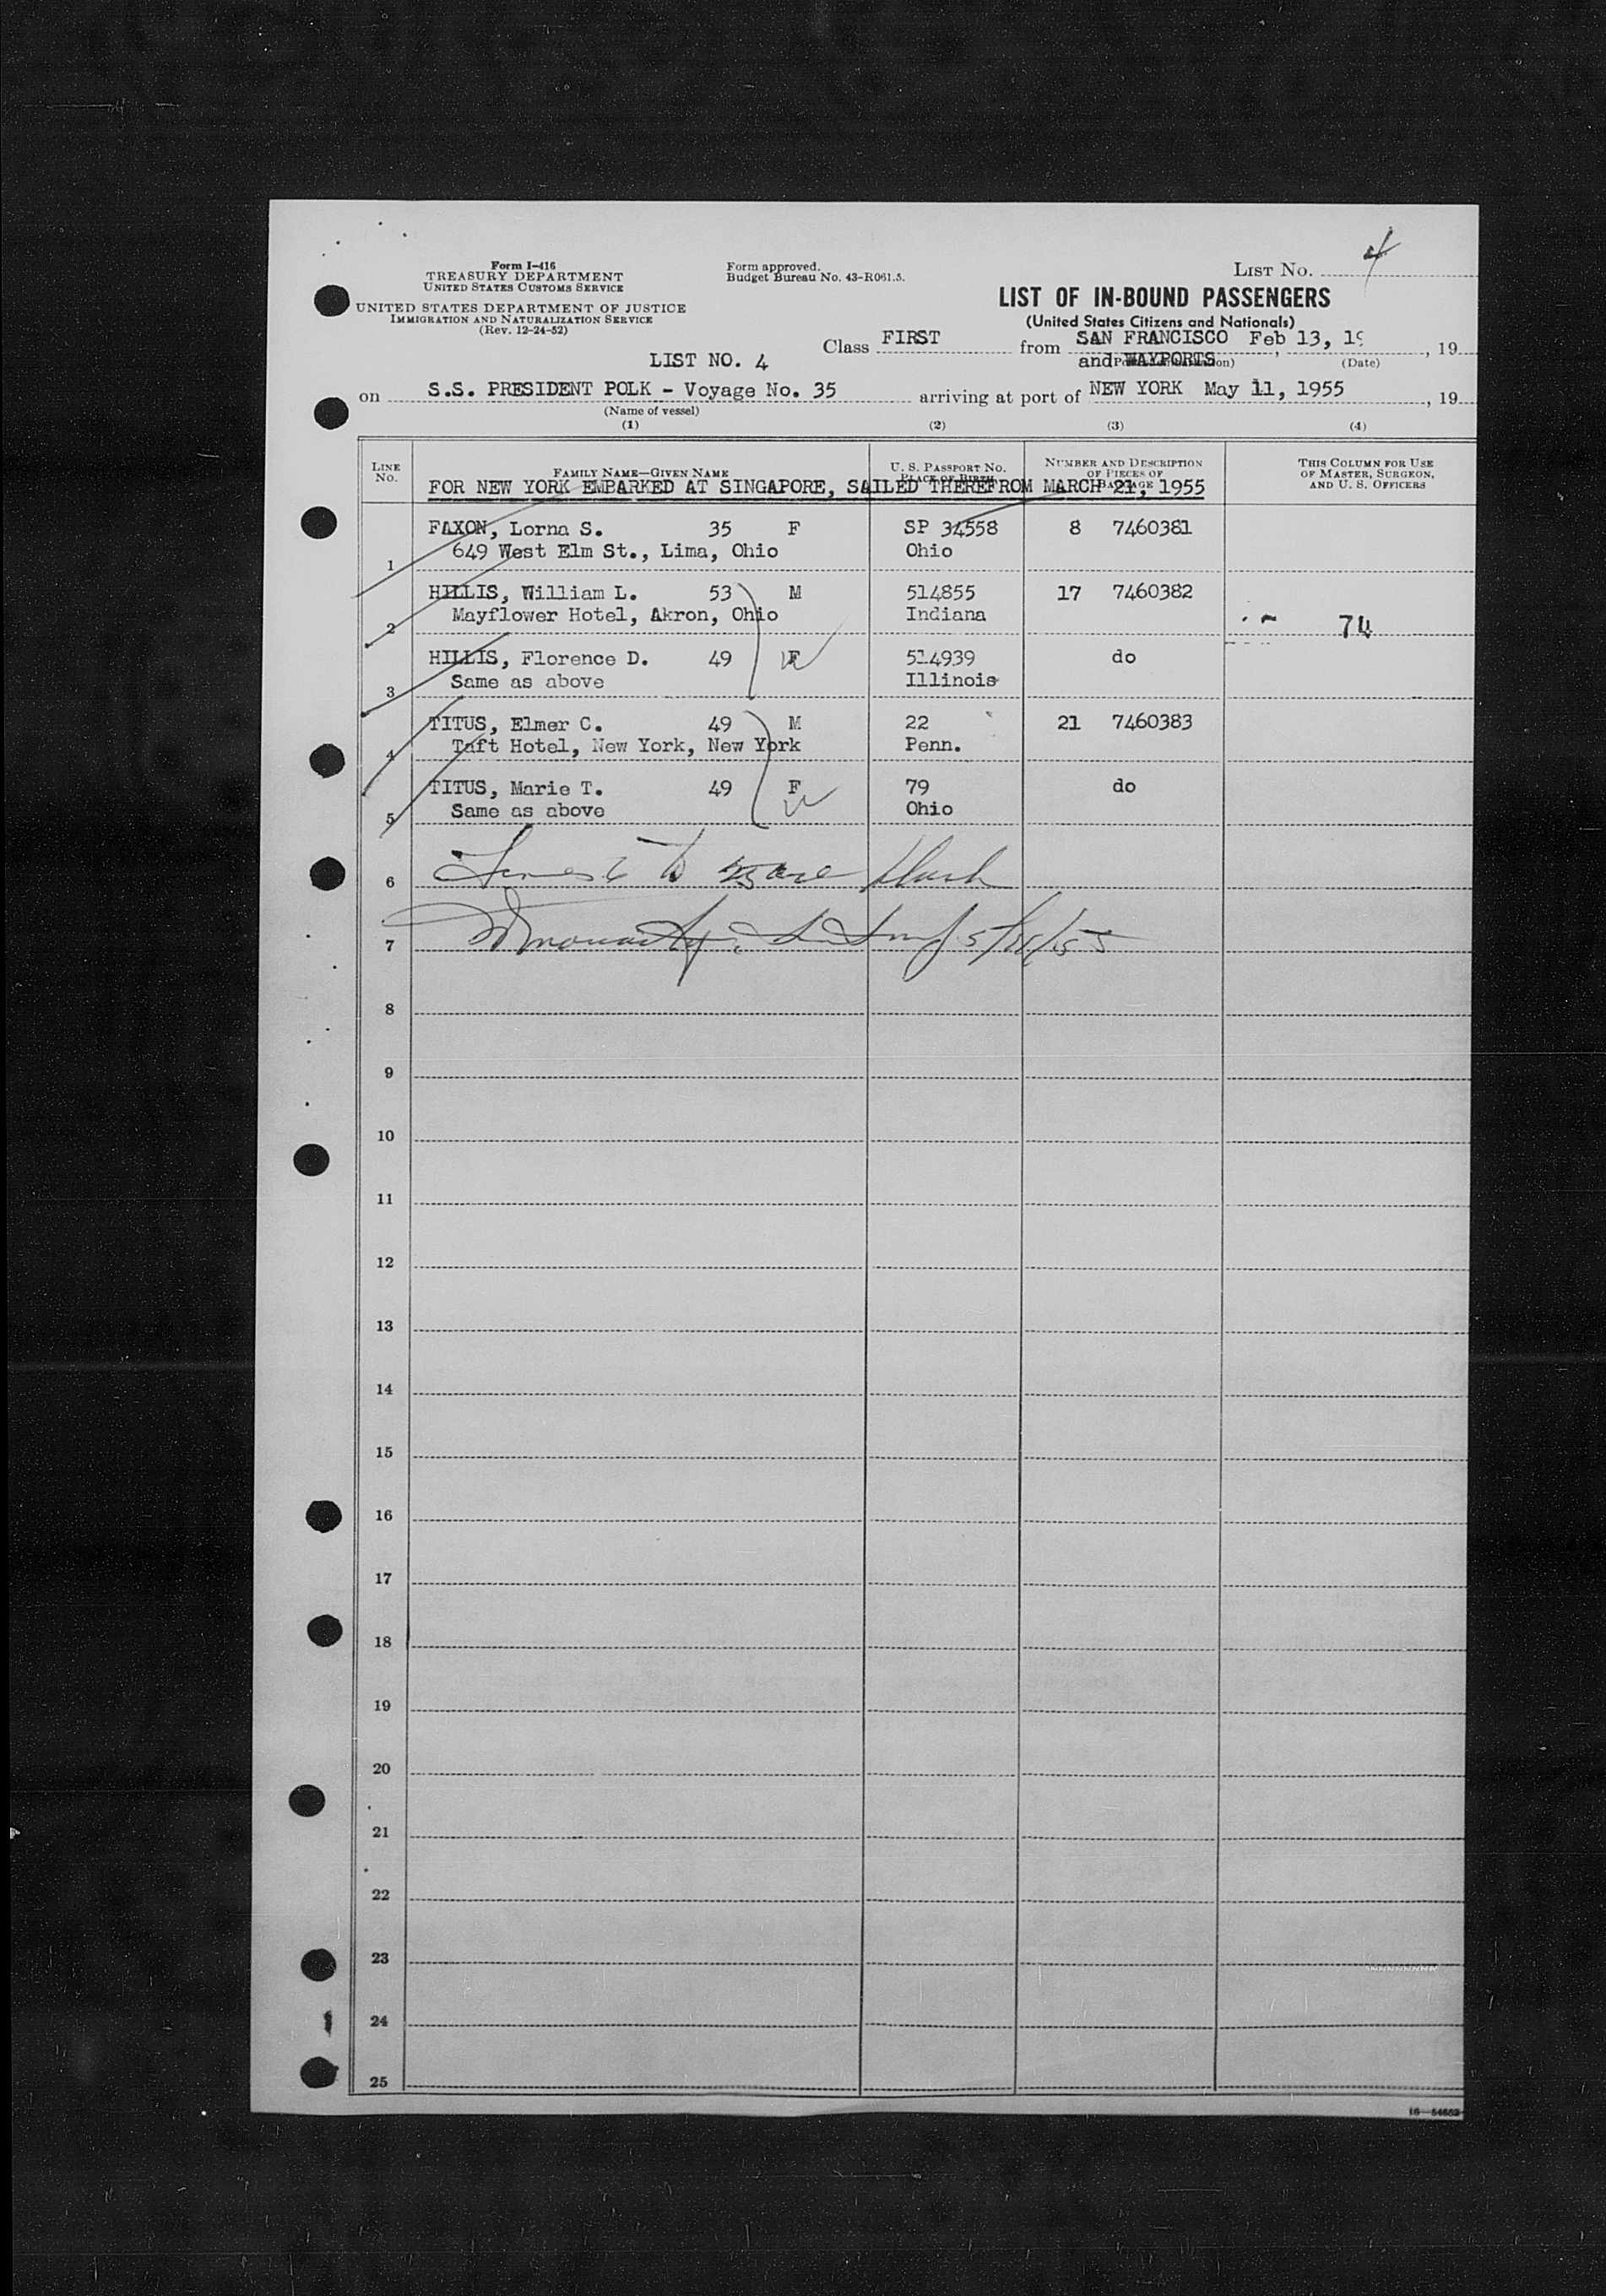 Form I-416
TREASURY DEPARTMENT
UNITED STATES CUSTOMS SERVICE
UNITED STATES DEPARTMENT OF JUSTICE
IMMIGRATION AND NATURALIZATION SERVICE
(Rev. 12-24-52)
Form approved.
Budget Bureau No. 43-R061.5.
LIST NO. 4
LIST OF IN-BOUND PASSENGERS
(United States Citizens and Nationals)
LIST NO. 4
Class FIRST from SAN FRANCISCO Feb 13, 19 , 19
and WAYPORTS (Date)
on S.S. PRESIDENT POLK - Voyage No. 35 arriving at port of NEW YORK May 11, 1955 , 19
(Name of vessel)
(1) (2) (3) (4)
LINE NO. FAMILY NAME—GIVEN NAME U. S. PASSPORT NO. PLACE OF BIRTH NUMBER AND DESCRIPTION OF PIECES OF BAGGAGE THIS COLUMN FOR USE OF MASTER, SURGEON, AND U. S. OFFICERS
FOR NEW YORK EMBARKED AT SINGAPORE, SAILED THEREFROM MARCH 21, 1955
FAXON, Lorna S. 35 F SP 34558 8 7460381
1 649 West Elm St., Lima, Ohio Ohio
HILLIS, William L. 53 M 514855 17 7460382
2 Mayflower Hotel, Akron, Ohio Indiana 74
HILLIS, Florence D. 49 F 514939 do
3 Same as above Illinois
TITUS, Elmer C. 49 M 22 21 7460383
4 Taft Hotel, New York, New York Penn.
TITUS, Marie T. 49 F 79 do
5 Same as above Ohio
6 Lines 6 to 25 are blank
7
8
9
10
11
12
13
14
15
16
17
18
19
20
21
22
23
24
25